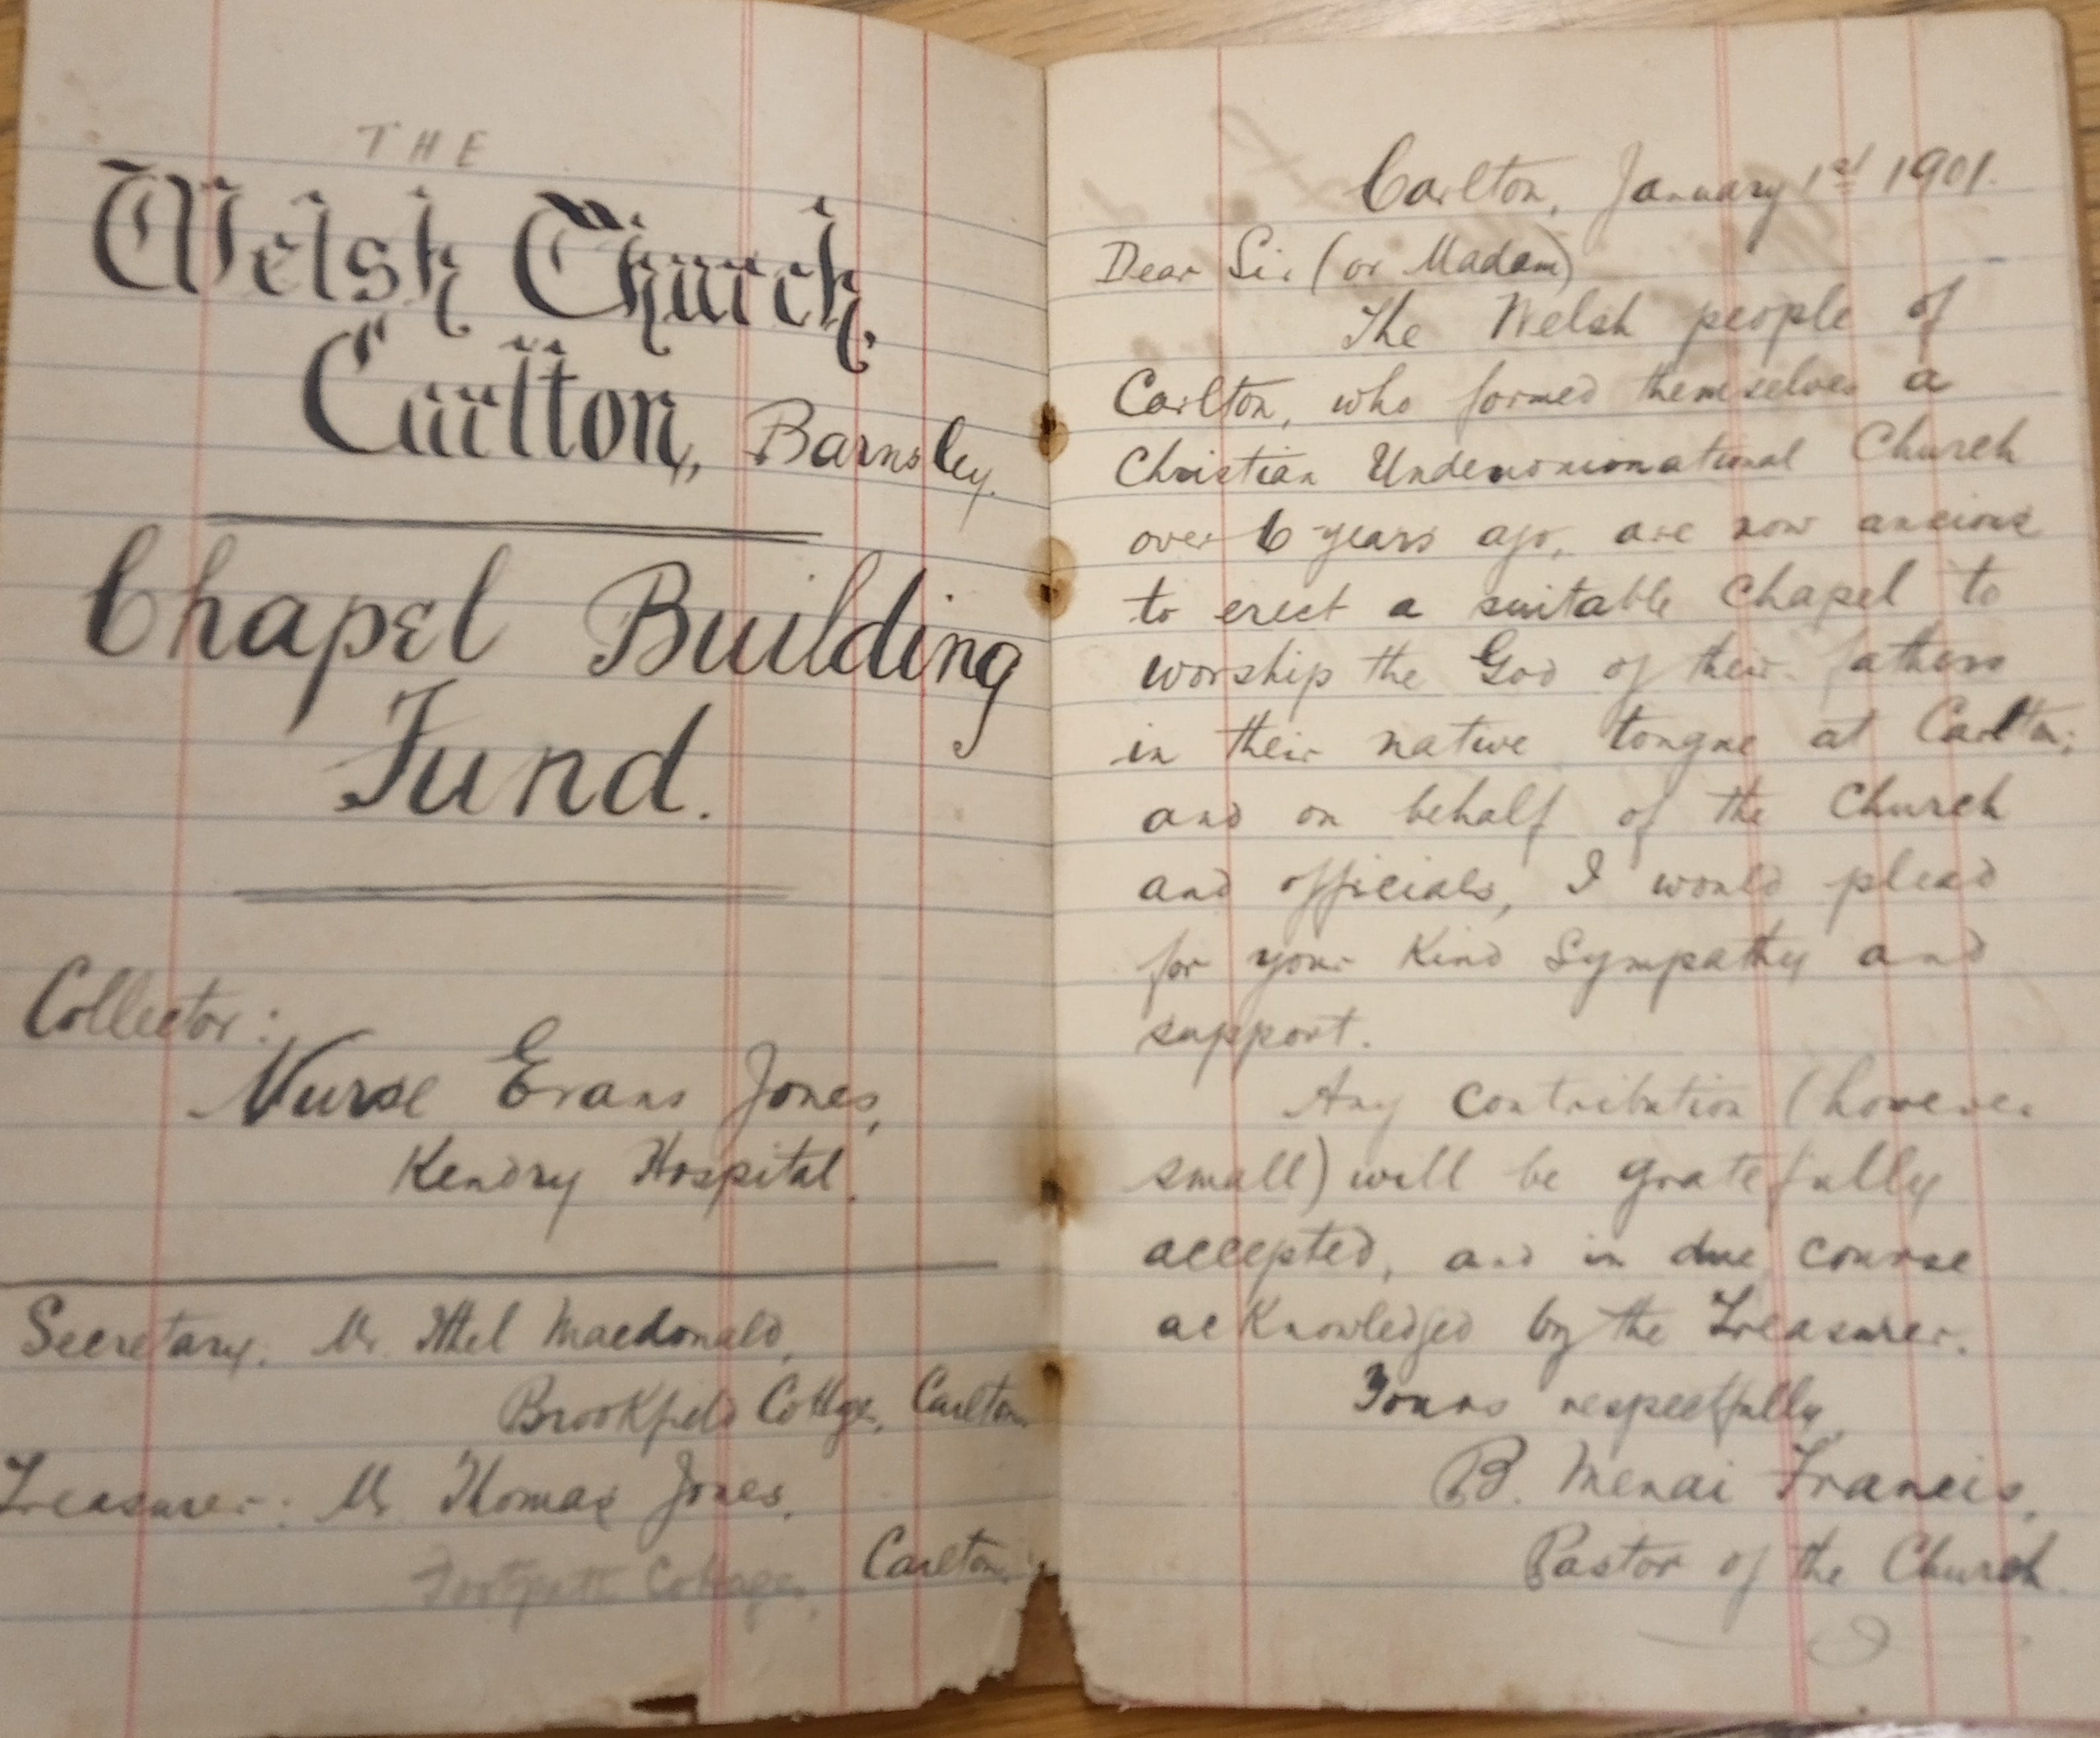 THE
Welsh Church,
Carlton, Barnsley.
Chapel Building
Fund.
Collector:
Nurse Evans Jones,
Kendry Hospital.
Secretary: Mr. Ithel Macdonald,
Brookfield Cottge, Carlton.
Treasurer: Mr Thomas Jones,
Footpath Cottage, Carlton.
Carlton, January 1st 1901.
Dear Sir (or Madam)
The Welsh people of
Carlton, who formed themselves a
Christian Undenominational Church
over 6 years ago, are now ancious
to erect a suitable Chapel to
worship the God of their fathers
in their native tongue at Carlton;
and on behalf of the Church
and officials, I would plead
for your Kind Sympathy and
support.
Any contribution (however
small) will be gratefully
accepted, and in due course
acKnowledged by the Treasurer.
Yours respectfully,
B. Menai Francis,
Pastor of the Church.